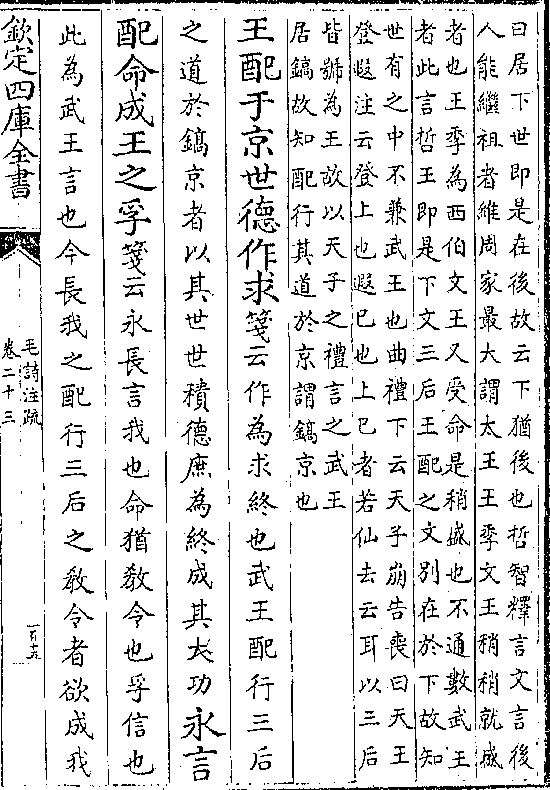 曰居下世即是在後故云下猶後也哲智釋言文言後
人能繼祖者維周家最大謂太王王季文王稍稍就盛
者也王季為西伯文王又受命是稍盛也不通數武王
者此言哲王即是下文三后王配之文別在於下故知
世有之中不兼武王也曲禮下云天子崩告喪曰天王
登遐注云登上也遐已也上已者若仙去云耳以三后
皆號為王故以天子之禮言之武王
居鎬故知配行其道於京謂鎬京也
王配于京世德作求箋云作為求終也武王配行三后
之道於鎬京者以其世世積德庶為終成其大功永言
配命成王之孚箋云永長言我也命猶教令也孚信也
此為武王言也今長我之配行三后之教令者欲成我
欽定四庫全書
毛詩注疏
卷二十三
一百十五